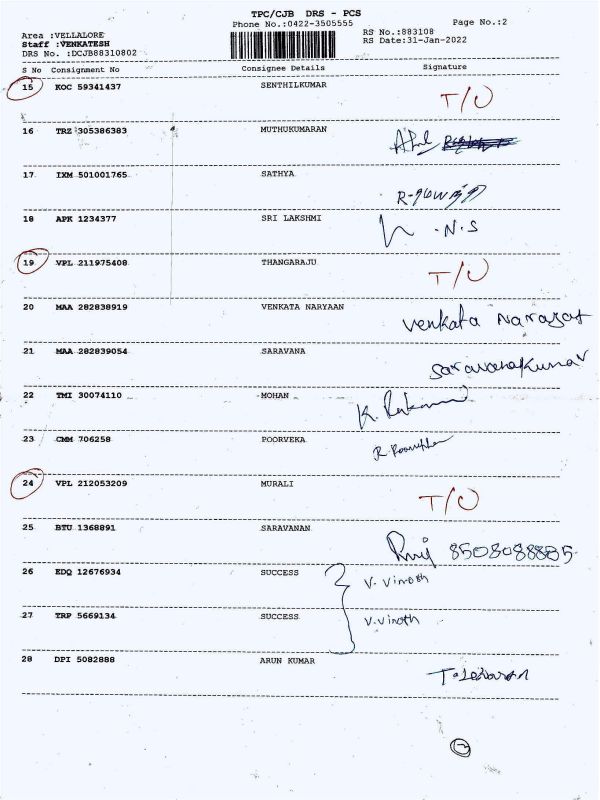 TPC/CJB DRS - PCS
Phone No.:0422-3505555
Page No.:2
Area :VELLALORE
Staff :VENKATESH
DRS No. :DCJB88310802
RS No.:883108
RS Date:31-Jan-2022
S No Consignment No Consignee Details Signature
15 KOC 59341437 SENTHILKUMAR T/O
16 TRZ 305386383 MUTHUKUMARAN
17 IXM 501001765 SATHYA
18 APK 1234377 SRI LAKSHMI .N.S
19 VPL 211975408 THANGARAJU T/O
20 MAA 282838919 VENKATA NARYAAN Venkata
21 MAA 282839054 SARAVANA Saravanakumar
22 TMI 30074110 MOHAN
23 CMM 706258 POORVEKA
24 VPL 212053209 MURALI T/O
25 BTU 1368891 SARAVANAN 8508088885
26 EDQ 12676934 SUCCESS V. Vinoth
27 TRP 5669134 SUCCESS V. Vinoth
28 DPI 5082888 ARUN KUMAR